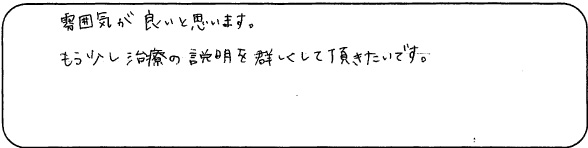 雰囲気が良いと思います。
もう少し治療の説明を群しくして頂きたいです。